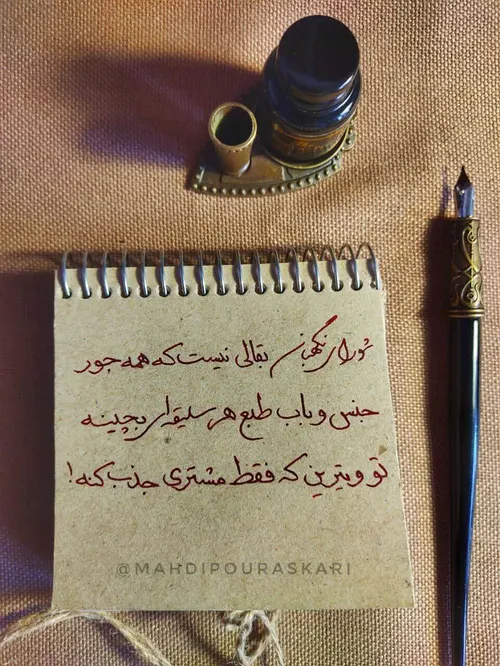 شورای نگهبان بقالی نیست که همه جور
جنس و باب طبع هر سلیقه‌ای بچینه
تو ویترین که فقط مشتری جذب کنه!
@MAHDIPOURASKARI